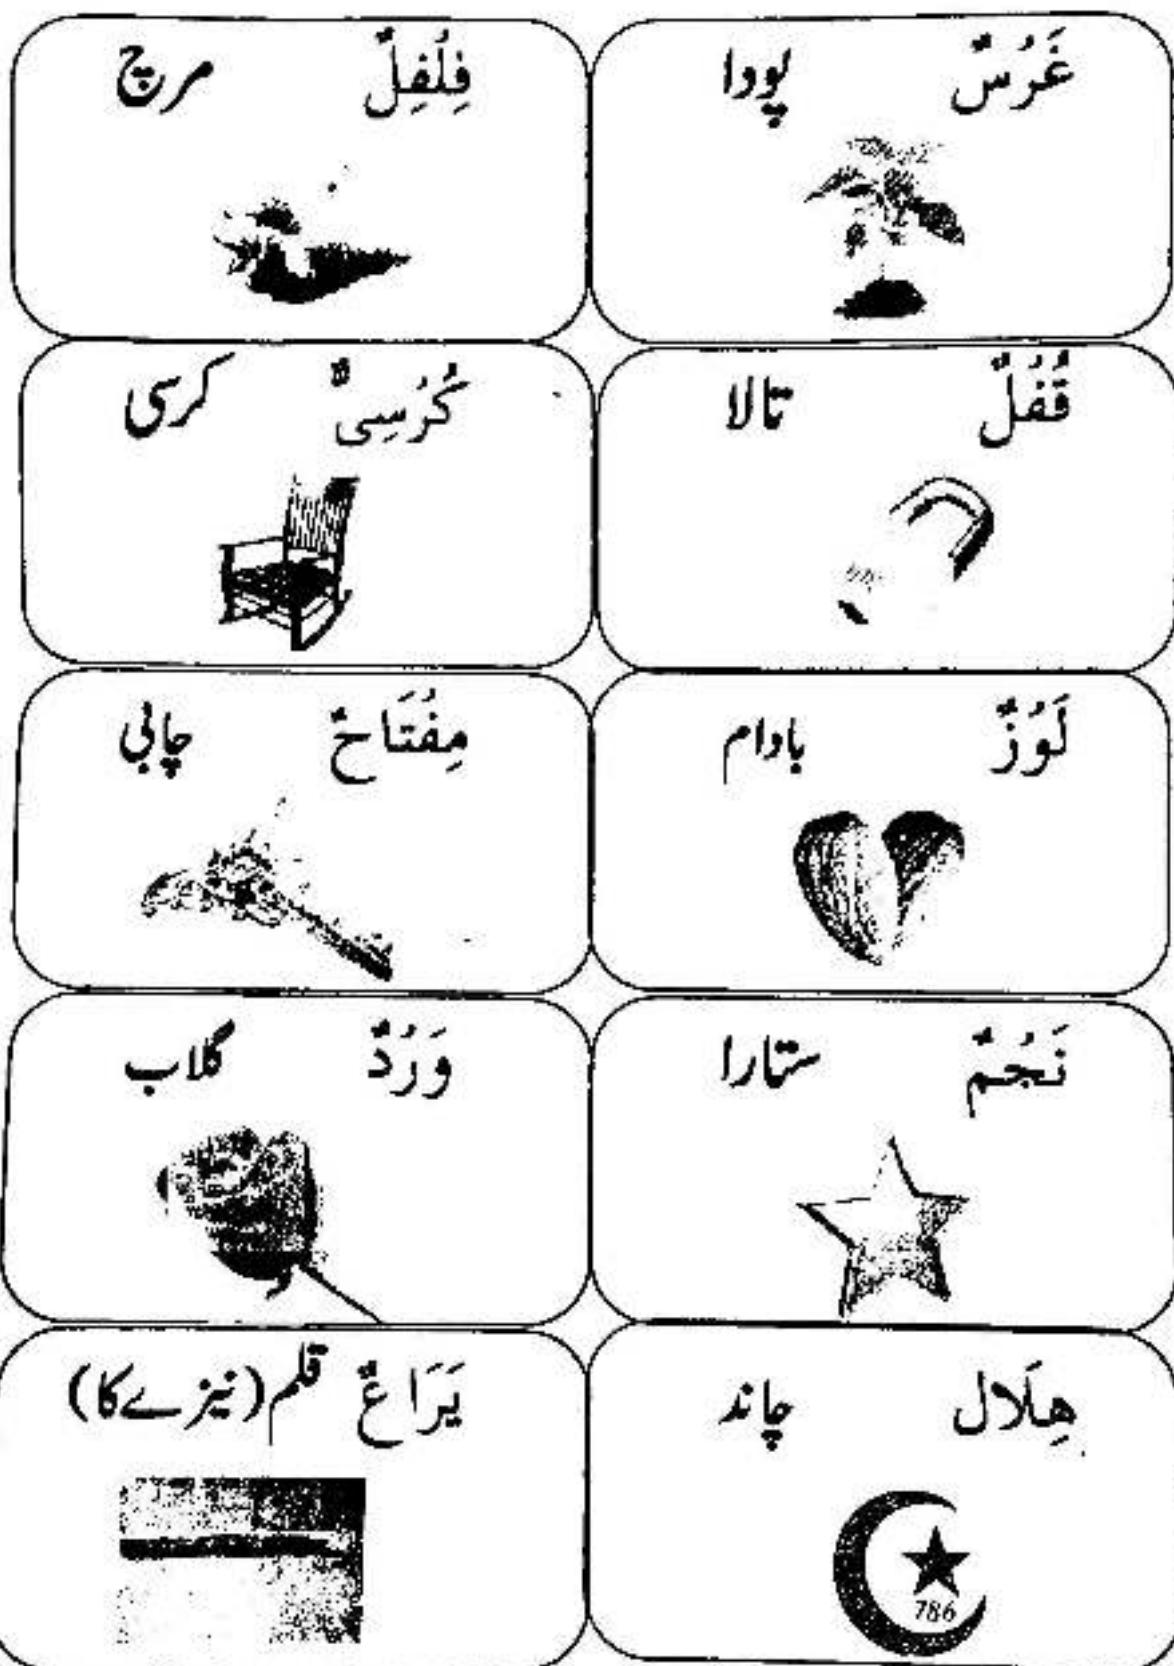 غَرْسٌ پودا
فِلْفِلٌ مرچ
قُفْلٌ تالا
كُرْسِیٌّ کرسی
لَوْزٌ بادام
مِفْتَاحٌ چابی
نَجْمٌ ستارا
وَرْدٌ گلاب
هِلَال چاند
786
يَرَاعٌ قلم (نیزے کا)